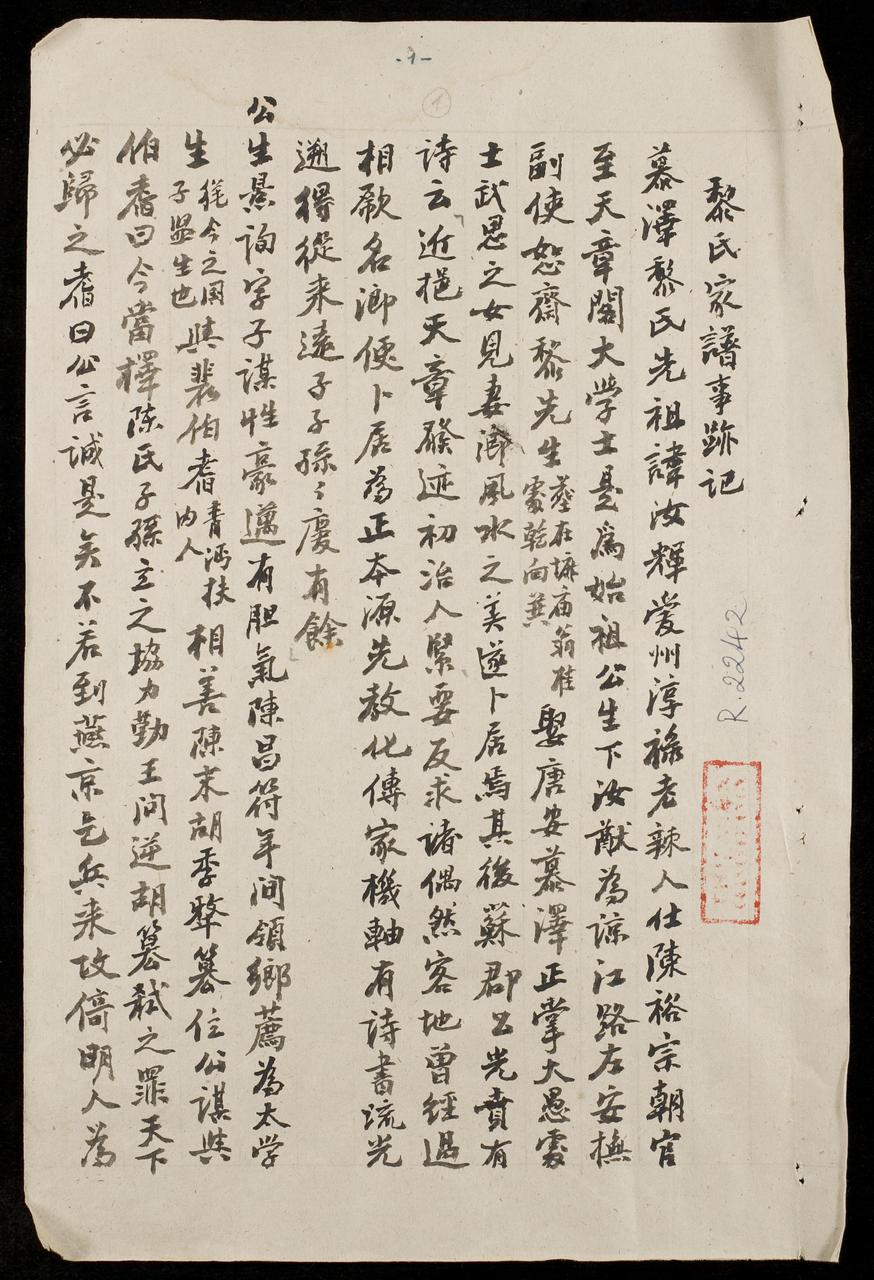 -1-
1
黎氏家譜事跡記
R.2242
慕澤黎氏先祖諱汝輝愛州淳祿老辣人仕陳裕宗朝官
至天章閣大學士是爲始祖公生下汝猷為諒江路左安撫
副使恕齋黎先生墓在㙁庙翁桂處乾向巽娶唐安慕澤正掌大愚處
士武愚之女見妻鄉風水之美遂卜居焉其後蘇郡公光賁有
詩云近挹天章發迹初治人緊要反求諸偶然客地曾經過
相歡名鄉便卜居為正本源先教化傳家機軸有詩書流光
遡得從来遠子子孫〻慶有餘
公生景詢字子謀性豪邁有胆氣陳昌符年间領鄉薦為太学
生從今之國子監生也與裴伯耆青沔扶内人相善陳末胡季犛篡位公謀與
伯耆曰今當擇陈氏子孫立之協力勤王问逆胡篡弒之罪天下
必歸之耆曰公言誠是矣不若到燕京乞兵来攻倘明人為